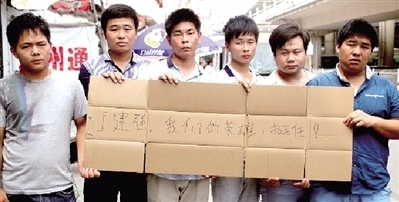 州通
丁建强，我们的英雄，挺住！